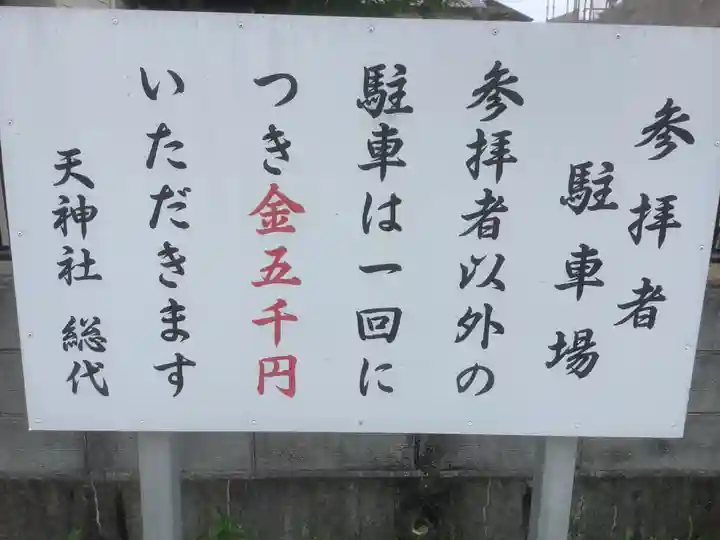 参拝者
駐車場
参拝者以外の
駐車は一回に
つき金五千円
いただきます
天神社 総代